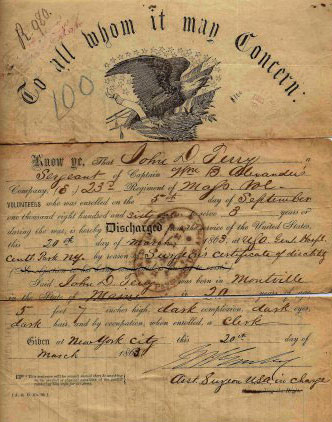 R 980.
100
To all whom it may Concern:
Know ye, That John D. Terry a
Sergeant of Captain Wm B. Alexander's
Company, (E) 23d Regiment of Mass. Vol.
VOLUNTEERS who was enlisted on the 5th day of September
one thousand eight hundred and sixty to serve 3 years or
during the war, is hereby Discharged from the service of the United States,
this 20th day of March, 1863, at U.S. Genl Hosptl
Centl Park N.Y. by reason of Surgeon's certificate of disability
Said John D. Terry was born in Montville
in the State of Maine, is 20 years
5 feet inches high, dark complexion, dark eyes,
dark hair, and by occupation, when enrolled, a clerk
Given at New York City this 20th day of
March 1863
Asst Surgeon U.S.A. in charge